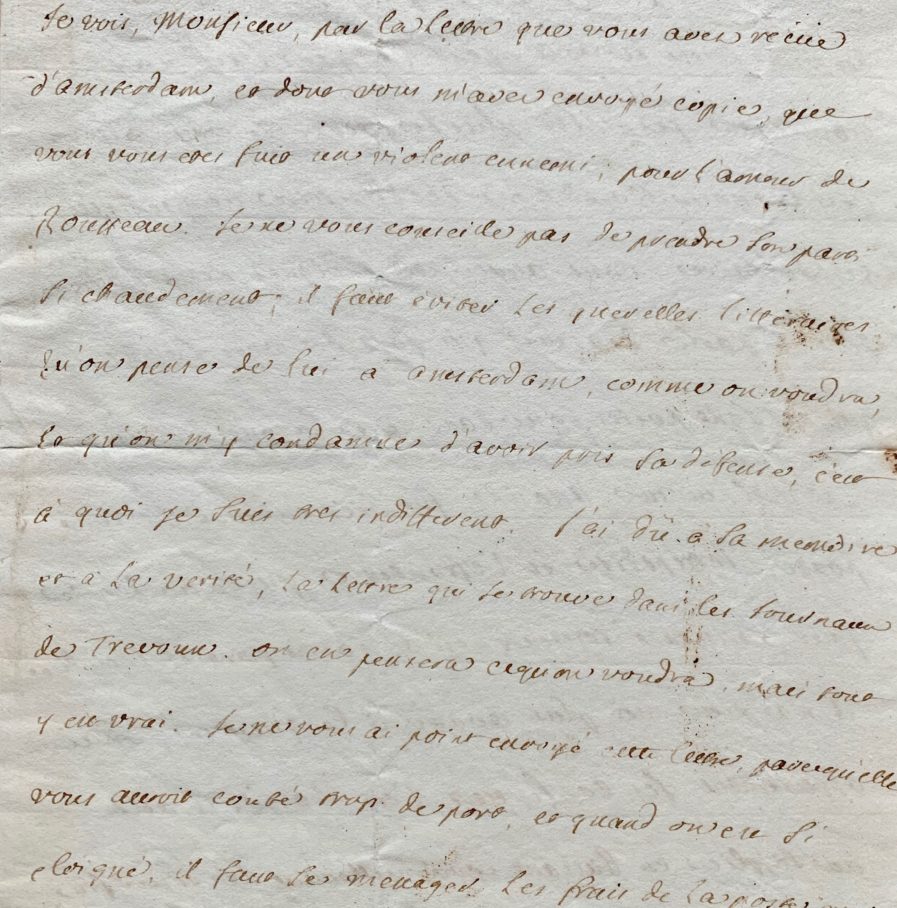 Je vois, Monsieur, par la lettre que vous aves reçüe
d'amsterdam, et dont vous m'avez envoyé copie, que
vous vous etes fait un violent ennemi, pour l'amour de
Rousseau. Je ne vous conseille pas de prendre son parti
si chaudement; il faut eviter les querelles litteraires
Qu'on pense de lui a amsterdam, comme on voudra,
Et qu'on m'y condamne d'avoir pris sa defense, c'est
à quoi je suis tres indifferent. J'ai dû à sa memoire
et à la verité, la lettre qui se trouve dans les Journaux
de Trevoux. on en pensera ce qu'on voudra, mais tout
y est vrai. Je ne vous ai point envoyé cette lettre, parcequ'elle
vous auroit couté trop de port, et quand on est si
eloigné, il faut se menager les frais de la poste